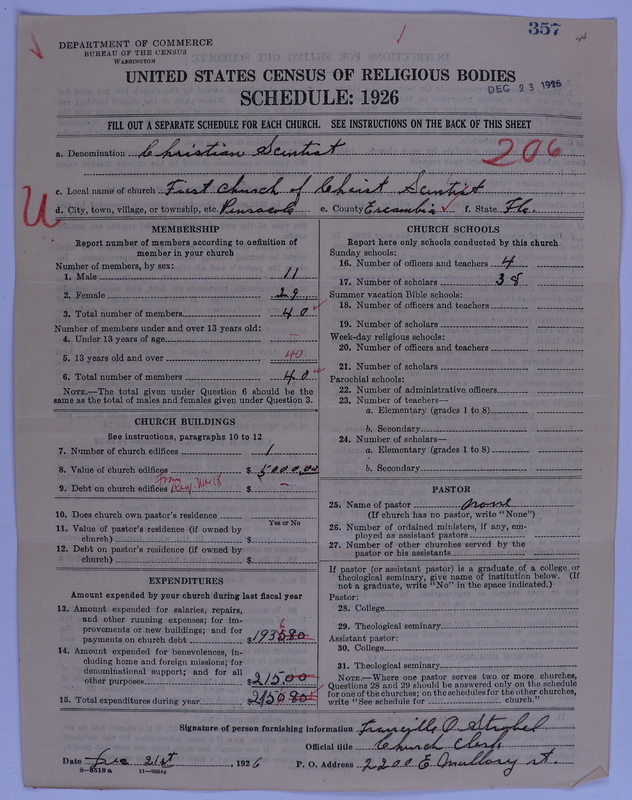 357
DEPARTMENT OF COMMERCE
BUREAU OF THE CENSUS
WASHINGTON
UNITED STATES CENSUS OF RELIGIOUS BODIES
SCHEDULE: 1926
DEC 23 1926
FILL OUT A SEPARATE SCHEDULE FOR EACH CHURCH. SEE INSTRUCTIONS ON THE BACK OF THIS SHEET
a. Denomination Christian Scientist
206
c. Local name of church First Church of Christ Scientist
U
d. City, town, village, or township, etc. Pensacola e. County Escambia f. State Fla.
MEMBERSHIP
Report number of members according to definition of
member in your church
Number of members, by sex:
1. Male 11
2. Female 29
3. Total number of members 40
Number of members under and over 13 years old:
4. Under 13 years of age –
5. 13 years old and over 40
6. Total number of members 40
NOTE.—The total given under Question 6 should be the
same as the total of males and females given under Question 3.
CHURCH BUILDINGS
See instructions, paragraphs 10 to 12
7. Number of church edifices 1
8. Value of church edifices $ 5000.00
9. Debt on church edifices $ –
10. Does church own pastor's residence
Yes or No
11. Value of pastor's residence (if owned by
church) $
12. Debt on pastor's residence (if owned by
church) $
EXPENDITURES
Amount expended by your church during last fiscal year
13. Amount expended for salaries, repairs,
and other running expenses; for im-
provements or new buildings; and for
payments on church debt $ 1935.80
14. Amount expended for benevolences, in-
cluding home and foreign missions; for
denominational support; and for all
other purposes $ 215.00
15. Total expenditures during year $ 2150.80
CHURCH SCHOOLS
Report here only schools conducted by this church
Sunday schools:
16. Number of officers and teachers 4
17. Number of scholars 38
Summer vacation Bible schools:
18. Number of officers and teachers
19. Number of scholars
Week-day religious schools:
20. Number of officers and teachers
21. Number of scholars
Parochial schools:
22. Number of administrative officers
23. Number of teachers—
a. Elementary (grades 1 to 8)
b. Secondary
24. Number of scholars—
a. Elementary (grades 1 to 8)
b. Secondary
PASTOR
25. Name of pastor none
(If church has no pastor, write "None")
26. Number of ordained ministers, if any, em-
ployed as assistant pastors
27. Number of other churches served by the
pastor or his assistants
If pastor (or assistant pastor) is a graduate of a college or
theological seminary, give name of institution below. (If
not a graduate, write "No" in the space indicated.)
Pastor:
28. College
29. Theological seminary
Assistant pastor:
30. College
31. Theological seminary
NOTE.—Where one pastor serves two or more churches,
Questions 28 and 29 should be answered only on the schedule
for one of the churches; on the schedules for the other churches,
write "See schedule for church."
Signature of person furnishing information O. Strobel
Official title Church Clerk
Date Dec 21st, 1926 P. O. Address 2200 E Mallory st.
8-8518a 11-9054a